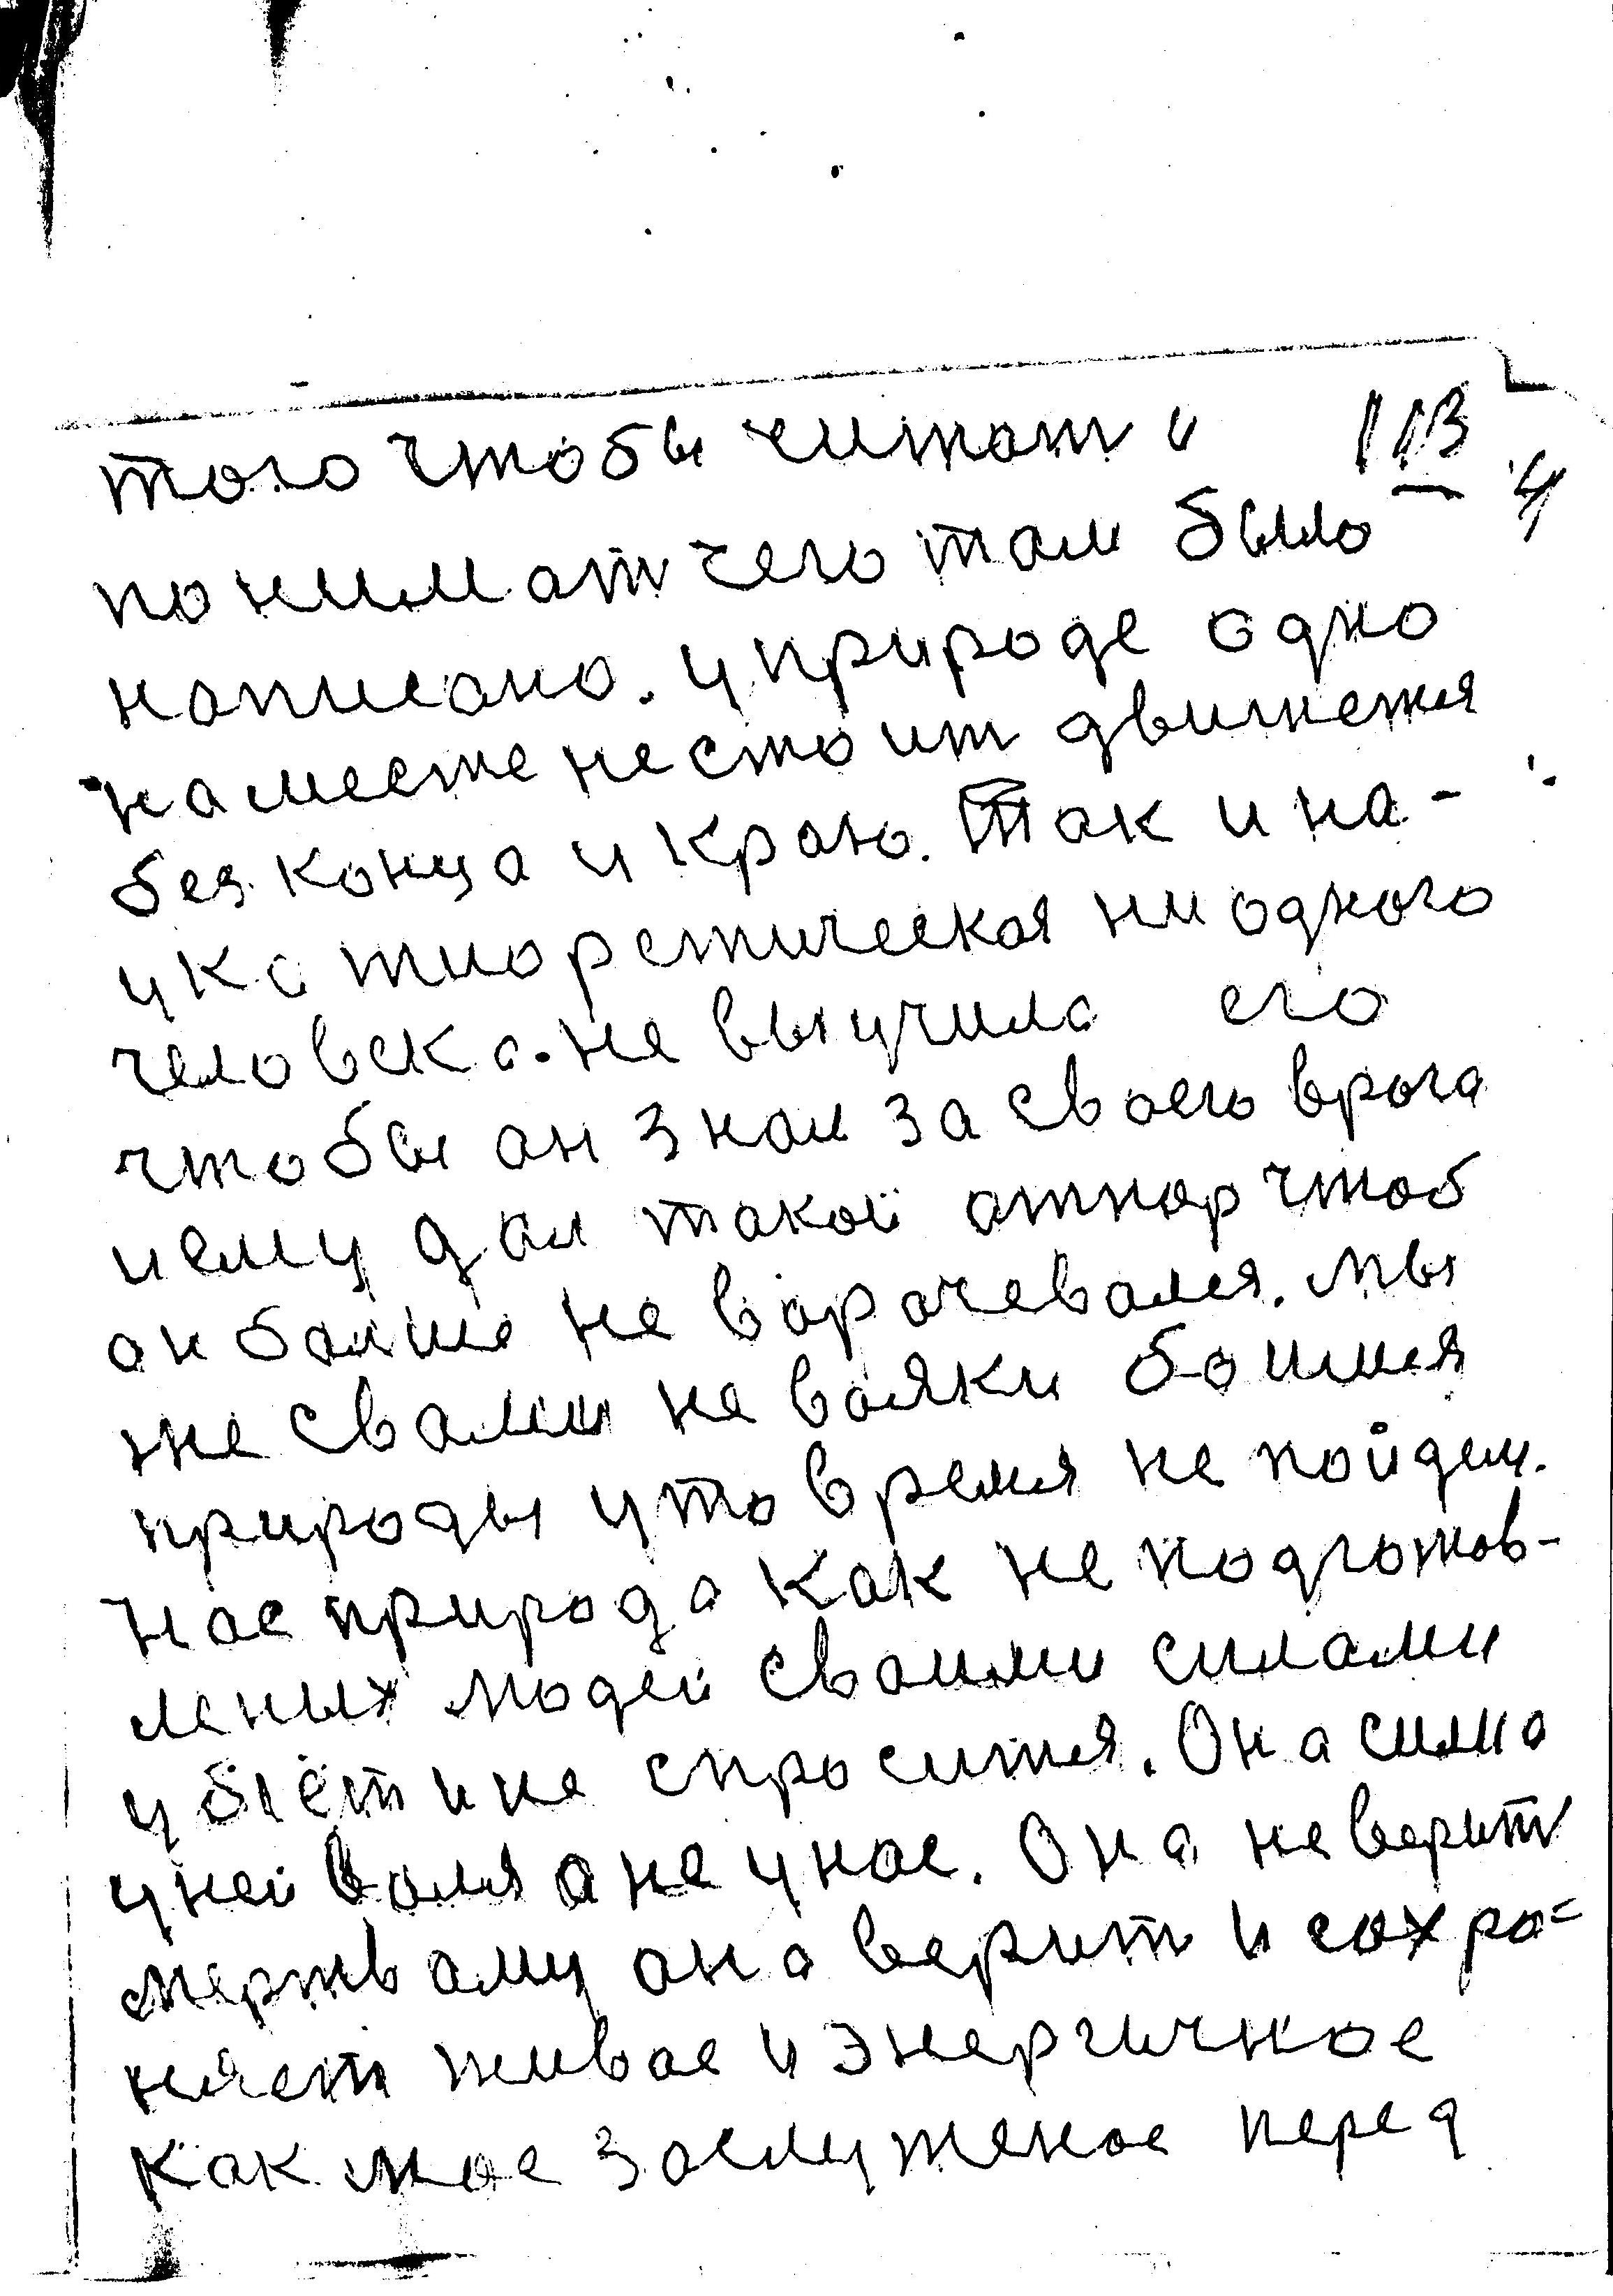 того чтобы читат и 113
понимат чего там было 4
написано. У природе одно
на месте не стоит движения
без конца и краю. Так и на-
ука тиоретическая ни одного
человека не выучила его
чтобы он знал за своего врага
иему дал такой атпор чтоб
он болше не ворачевался. Мы
же свами не вояки боимся
природы у то время не пойдем.
Нас природа как не подготов-
леных людей своими силами
убьёт и не спросится. Она сила
у ней воля а не у нас. Она не верит
мертвому она верит и сохра=
няет живое и энергичное
как мое заслуженое перед